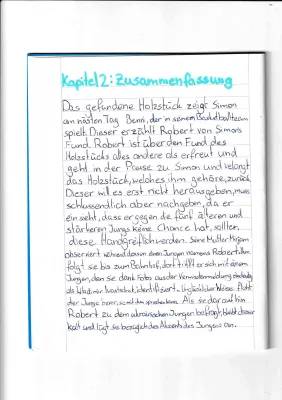 Kapitel 2: Zusammenfassung
Das gefundene Holzstück zeigt Simon
am nästen Tag Benni, der in seinem Basketballteam
spielt. Dieser erzählt Robert von Simons
Fund. Robert ist über den Fund des
Holzstücks alles andere als erfreut und
geht in der Pause zu Simon und verlangt
das Holzstück, welches ihm gehöre, zurück.
Dieser will es erst nicht herausgeben, muss
schlussendlich aber nachgeben, da er
einsieht, dass er gegen die fünf älteren und
stärkeren Jungs keine Chance hat, sollten
diese Handgreiflich werden. Seine Mutter
observiert während dessen einen Jungen namens Robert. Ihm
folgt sie bis zum Bahnhof, dort trifft er sich mit einem
Jungen, den sie dank Fotos aus der Vermisstenmeldung
als Wladimir identifiziert.
der Junge bevor, sie mit ihm sprechen kann. Als sie darauf hin
Robert zu dem ukrainischen Jungen befragt, bleibt dieser
kalt und lügt sie bezüglich des Akzents des Jungens an.